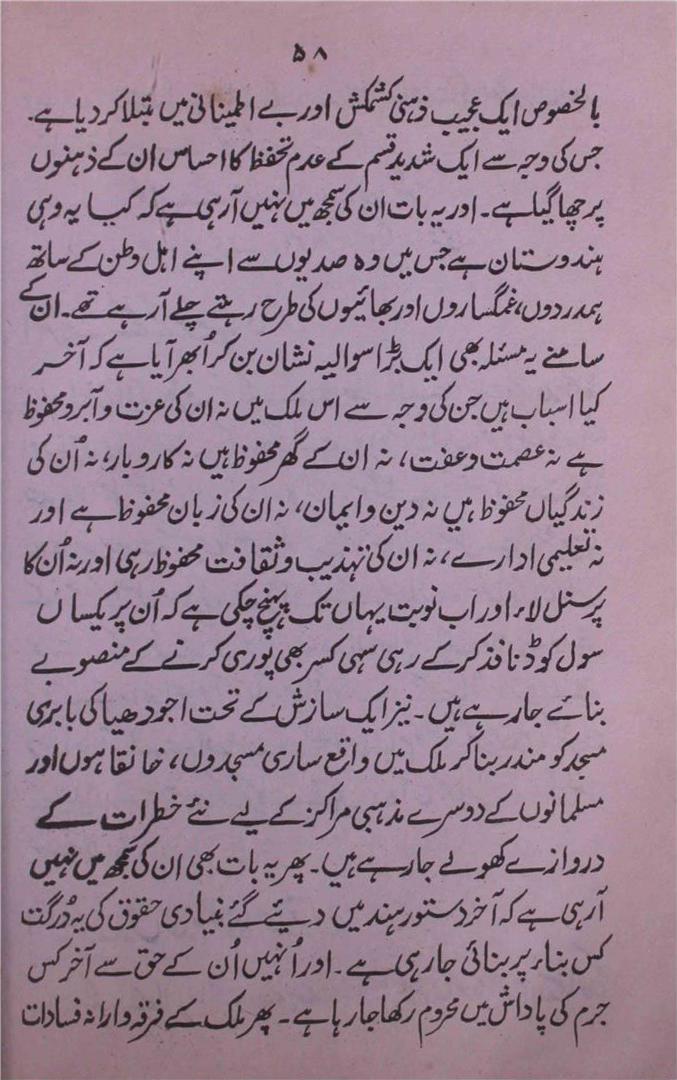 ۵۸
بالخصوص ایک عجیب ذہنی کشمکش اور بے اطمینانی میں مبتلا کر دیا ہے۔
جس کی وجہ سے ایک شدید قسم کے عدم تحفظ کا احساس ان کے ذہنوں
پر چھا گیا ہے۔ اور یہ بات ان کی سمجھ میں نہیں آرہی ہے کہ کیا یہ وہی
ہندوستان ہے جس میں وہ صدیوں سے اپنے اہل وطن کے ساتھ
ہمدردوں، غمگساروں اور بھائیوں کی طرح رہتے چلے آرہے تھے۔ ان کے
سامنے یہ مسئلہ بھی ایک بڑا سوالیہ نشان بن کر اُبھر آیا ہے کہ آخر
کیا اسباب ہیں جن کی وجہ سے اس ملک میں نہ ان کی عزت و آبرو محفوظ
ہے نہ عصمت و عفت، نہ ان کے گھر محفوظ ہیں نہ کاروبار، نہ اُن کی
زندگیاں محفوظ ہیں نہ دین و ایمان، نہ ان کی زبان محفوظ ہے اور
نہ تعلیمی ادارے، نہ ان کی تہذیب و ثقافت محفوظ رہی اور نہ اُن کا
پرسنل لاء اور اب نوبت یہاں تک پہنچ چکی ہے کہ اُن پر یکساں
سول کوڈ نافذ کر کے رہی سہی کسر بھی پوری کرنے کے منصوبے
بنائے جارہے ہیں۔ نیز ایک سازش کے تحت اجودھیا کی بابری
مسجد کو مندر بنا کر ملک میں واقع ساری مسجدوں، خانقاہوں اور
مسلمانوں کے دوسرے مذہبی مراکز کے لیے نئے خطرات کے
دروازے کھولے جارہے ہیں۔ پھر یہ بات بھی ان کی سمجھ میں نہیں
آرہی ہے کہ آخر دستور ہند میں دیئے گئے بنیادی حقوق کی یہ دُرگت
کس بناء پر بنائی جارہی ہے۔ اور اُنہیں اُن کے حق سے آخر کس
جرم کی پاداش میں محروم رکھا جارہا ہے۔ پھر ملک کے فرقہ وارانہ فسادات